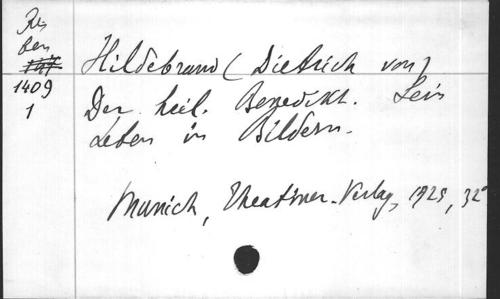 Res
Ben
1409
1
Hildebrand (Dietrich von)
Der heil. Benedikt. Sein
Leben in Bildern.
Munich, Theatiner-Verlag, 1925, 32°